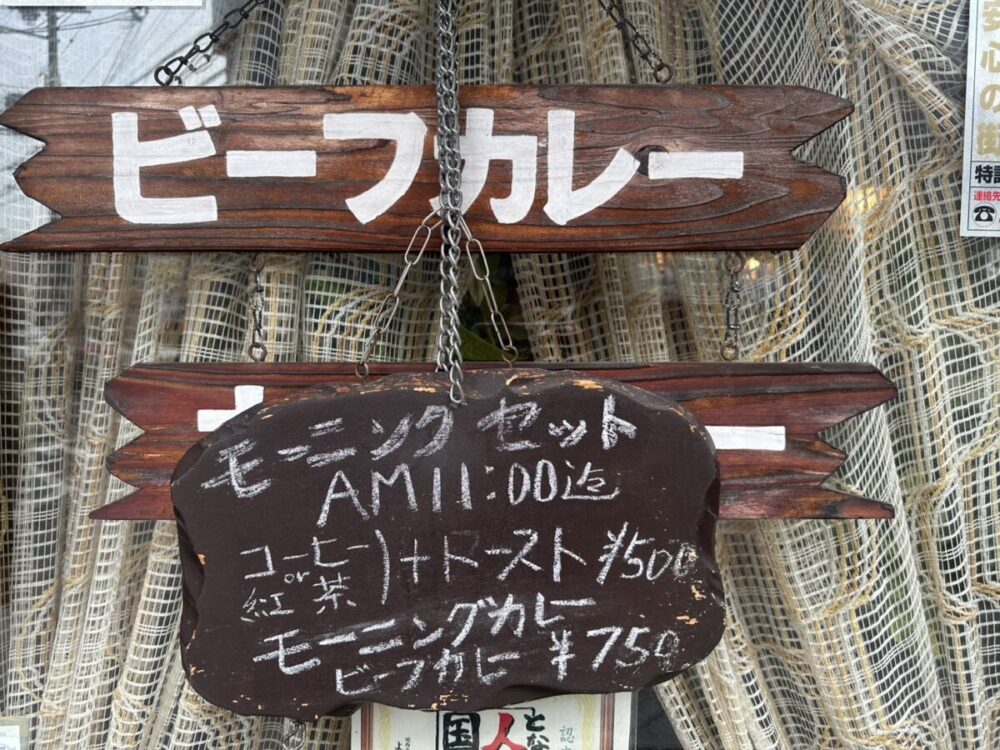 ビーフカレー
モーニングセット
AM11:00迄
コーヒー
or
紅茶
)+トースト ¥500
モーニングカレー
ビーフカレー ¥750
安心の街
特
連絡先
国
人
認